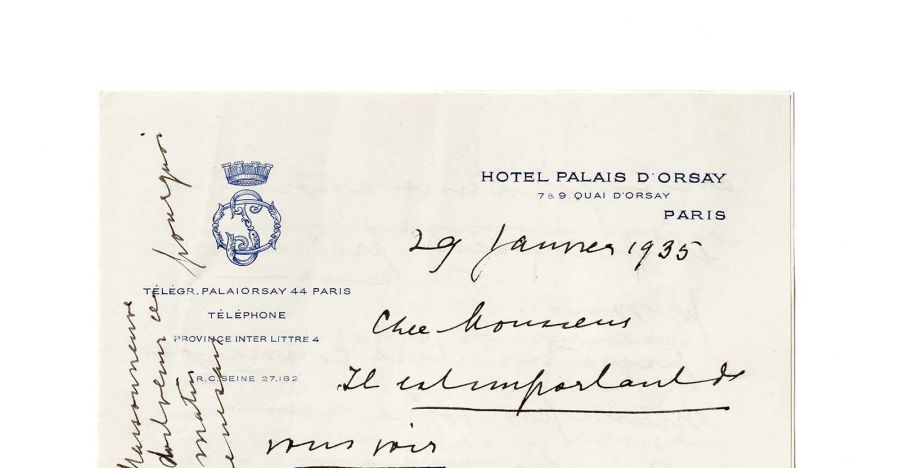 HOTEL PALAIS D'ORSAY
7 & 9. QUAI D'ORSAY
PARIS
TÉLÉGR. PALAIORSAY 44 PARIS
TÉLÉPHONE
PROVINCE INTER LITTRE 4
R.C. SEINE 27.182
29 Janvier 1935
Cher Monsieur
Il est important de
vous voir
pourquoi
doit venir ce
matin